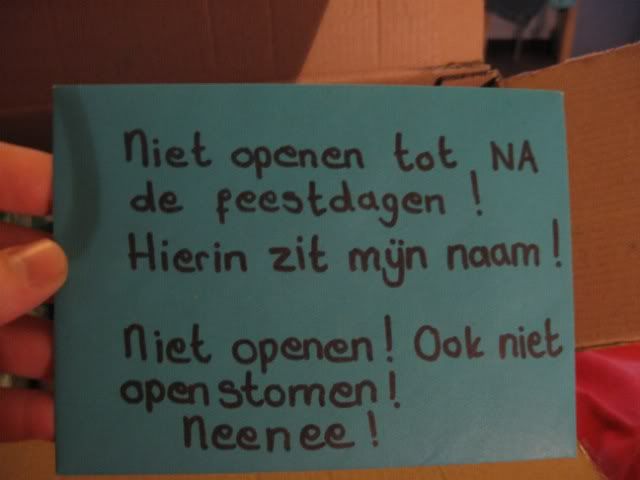 Niet openen tot NA
de feestdagen!
Hierin zit mijn naam!
Niet openen! Ook niet
openstomen!
Neenee!